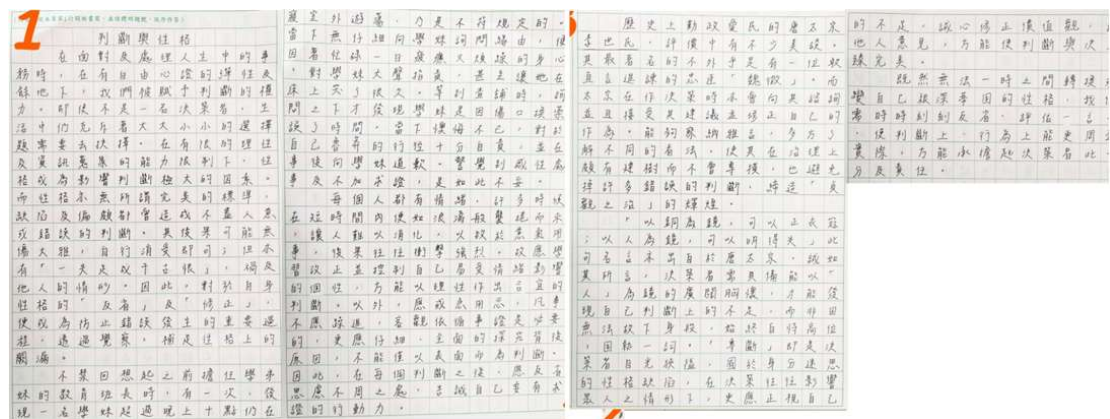 1
判斷與性格
在面對及處理人生中的事
務時，在有自由心證的彈性及
餘地下，我們被賦予判斷的權
力。即使不是一名決策者，生
活中仍充斥著大大小小的選擇
題需要去抉擇。在有限的理性
及資訊蒐集的能力限制下，性
格成為影響判斷極大的因素。
而性格本無所謂完美的標準，
缺陷及偏頗都會造成不盡人意
或錯誤的判斷。其後果可能無
傷大雅，自行消受即可；但亦
有「一失足成千古恨」，禍及
他人的情形。因此，對於自身
性格的「反省」及「修正」，
便成為防止錯誤發生的重要過
程，透過覺察，補足性格上的
闕漏。
不禁回想起之前擔任學弟
妹的教育班長時，有一次，發
現一名學妹超過晚上十點仍在
寢室外遊蕩，乃是不符規定的。
當下無仔細向學妹詢問緣由，便
因著忙碌一日疲憊又煩躁的身心
，對學妹大聲指責，甚至讓她在
床上哭了很久。等到查鋪時，詢
問之下才發現學妹是因傷口換藥
誤了時間。當下懊悔不已，對於
自己魯莽的行徑十分自責，並在
事後向學妹道歉。驚覺判斷性處
事及不加求證，是如此不妥。
每個人都有情緒，許多時候
在短時間內便如浪濤般襲捲而來
，讓人難以消化，以致於意氣用
事，後果往往衝擊強烈。故應學
習改正並控制自己易受情緒影響
的個性，方能以理性作出合宜的
判斷。以外，應戒急用忍，凡事
不應躁進，客觀依循事證是必要
的，更應仔細、全面的探究背後
原因，不能僅以表面而為判斷。
因此，在每個判斷之後，應反省
思慮不周之處，告誡自己要有求
證的行動力。
歷史上勤政愛民的唐太宗
李世民，評價中有不少美談。
其最著名的不外乎是有一位敢
直言進諫的忠臣「魏徵」。而
太宗在作決策時亦會向其諮詢
並且接受其建議並修正自己的
作為。能夠察納雅言，多方了
解不同的看法，使其在治理上
頗有建樹而不會專橫，也避免
掉許多錯誤的判斷，締造「貞
觀之治」的輝煌。
「以銅為鏡，可以正衣冠
；以人為鏡，可以明得失」此
句名言亦出自於唐太宗。誠如
其所言，決策者需具備能以「
人」為鏡的廣闊胸懷，才能發
現自己判斷上的不足，而非因
無法放下身段，始終自恃高位
，固執一詞。「專斷」即是決
策者目光狹隘，囿於身分迷思
的性格缺陷，在決策往往影響
眾人之情形下，更應正視自己
的不足，誠心修正價值觀，
他人意見，方能使判斷與決
臻完美。
既然無法一時之間轉換
變自己根深蒂固的性格，我
需時時刻刻反省，評估一言
，使判斷上、行為上能更周
實際，方能承擔起決策者此
分及責任。